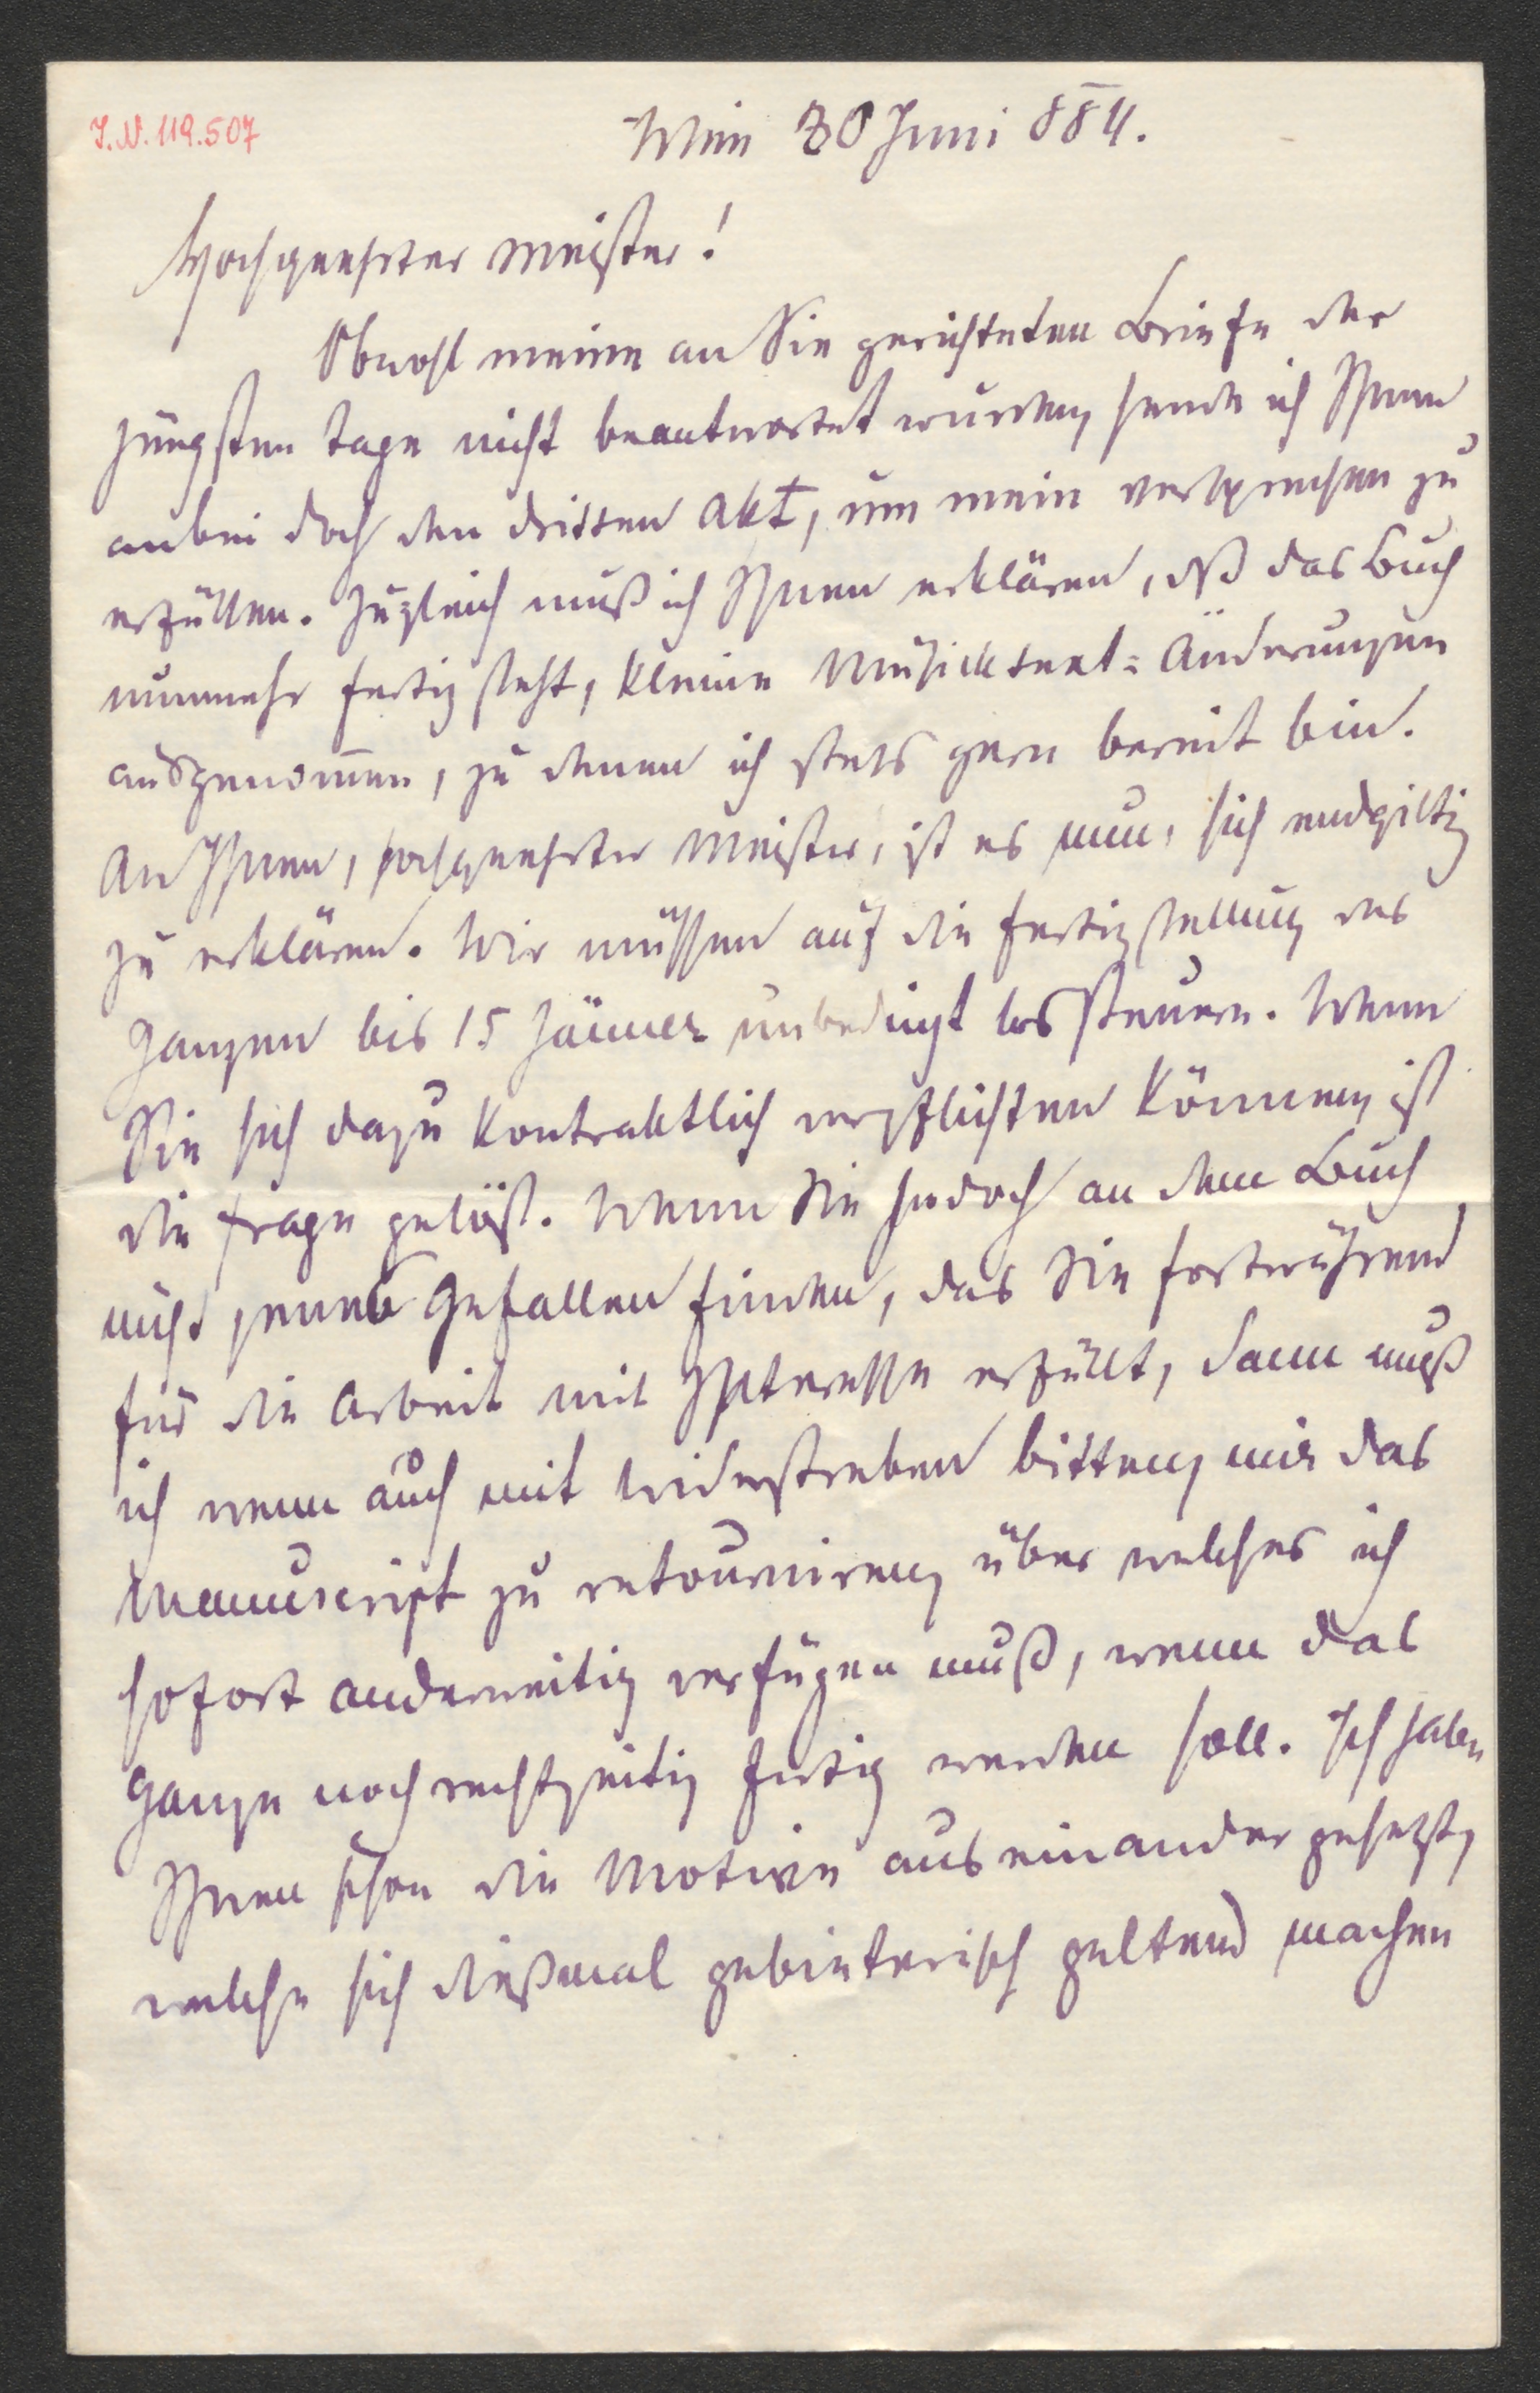 I.N. 119.507
Wien 30 Juni 884.
Hochgeehrter Meister!
Obwohl meine an Sie gerichteten Briefe der
jüngsten Tage nicht beantwortet wurden, sende ich Ihnen
anbei doch den dritten Akt, um mein Versprechen zu
erfüllen. Zugleich muß ich Ihnen erklären, dß das Buch
nunmehr fertig steht, kleine Musiktext-Änderungen
ausgenom̄en, zu denen ich stets gern bereit bin.
An Ihnen, hochgeehrter Meister, ist es nun, sich endgiltig
zu erklären. Wir müssen auf die Fertigstellung des
Ganzen bis 15 Jänner unbedingt lossteuern. Wenn
Sie sich dazu kontraktlich verpflichten können, ist
die Frage gelöst. Wenn Sie jedoch an dem Buch
nicht jenes Gefallen finden, das Sie fortwährend
für die Arbeit mit Interesse erfüllt, dann muß
ich wenn auch mit Widerstreben bitten, mir das
Manuscript zu retourniren, über welches ich
sofort anderweitig verfügen muß, wenn das
Ganze noch rechtzeitig fertig werden soll. Ich habe
Ihnen schon die Motive auseinander gesetzt,
welche sich dießmal gebieterisch geltend machen